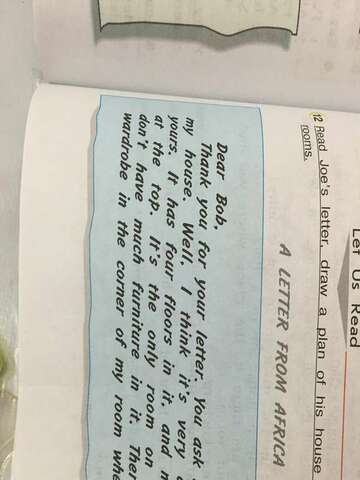 Let Us Read
12 Read Joe's letter, draw a plan of his house
rooms.
A LETTER FROM AFRICA
Dear Bob,
Thank you for your letter. You ask
my house. Well, I think it's very
yours. It has four floors in it, and
at the top. It's the only room on
don't have much furniture in it.
wardrobe in the corner of my room